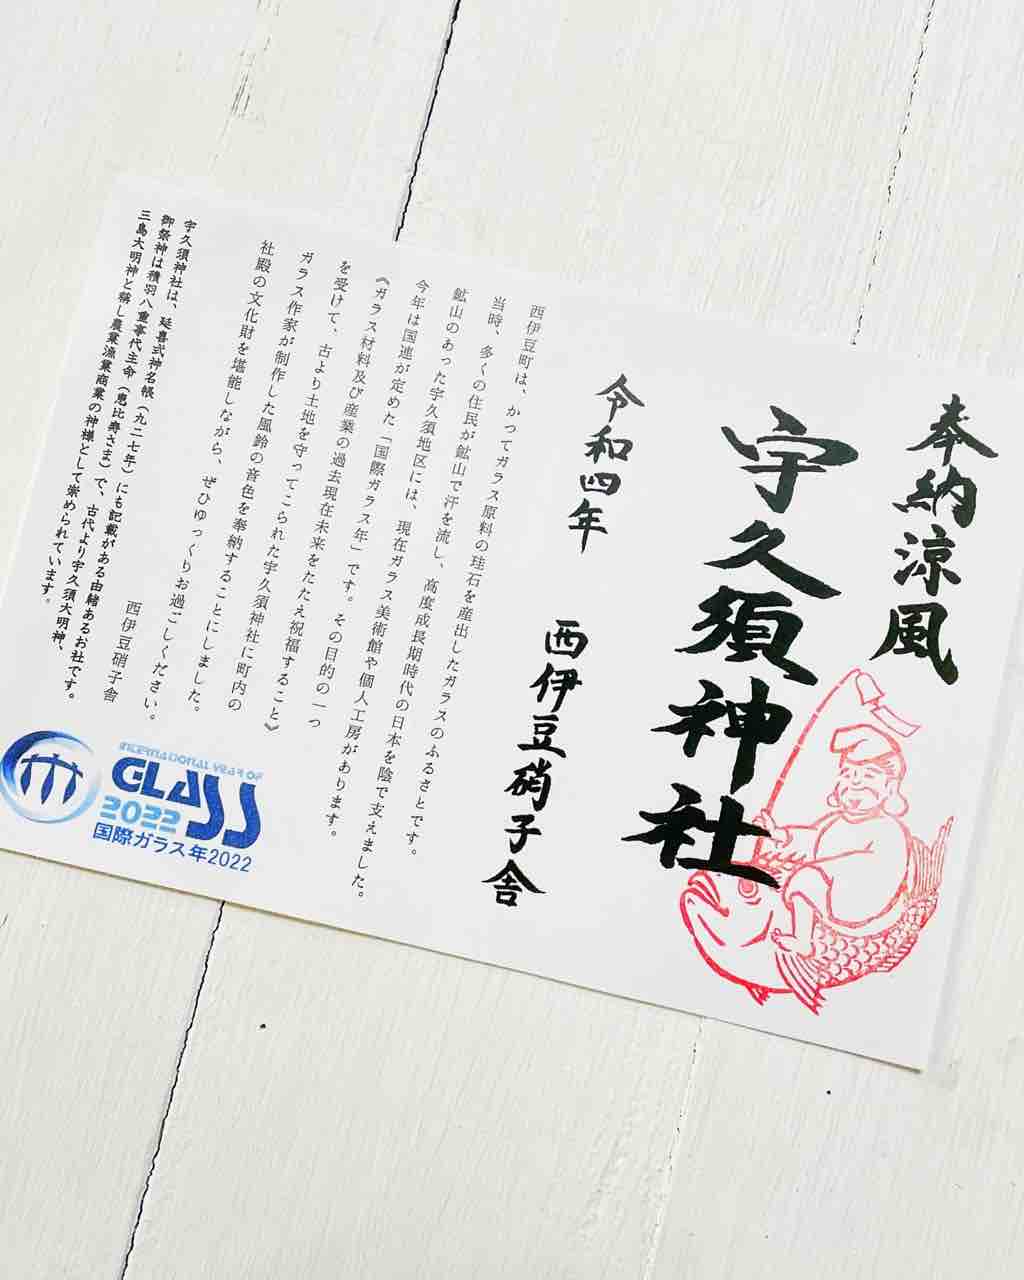 奉納涼風
宇久須神社
令和四年
西伊豆硝子舎
西伊豆町は、かつてガラス原料の珪石を産出したガラスのふるさとです。
当時、多くの住民が鉱山で汗を流し、高度成長期時代の日本を陰で支えました。
鉱山のあった宇久須地区には、現在ガラス美術館や個人工房があります。
今年は国連が定めた「国際ガラス年」です。その目的の一つ
《ガラス材料及び産業の過去現在未来をたたえ祝福すること》
を受けて、古より土地を守ってこられた宇久須神社に町内の
ガラス作家が制作した風鈴の音色を奉納することにしました。
社殿の文化財を堪能しながら、ぜひゆっくりお過ごしください。
西伊豆硝子舎
宇久須神社は、延喜式神名帳（九二七年）にも記載がある由緒あるお社です。
御祭神は積羽八重事代主命（恵比寿さま）で、古代より宇久須大明神、
三島大明神と称し農業漁業商業の神様として崇められています。
INTERNATIONAL YEAR OF
GLASS
2022
国際ガラス年2022